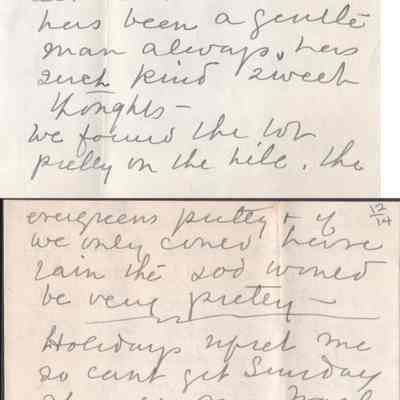 has been a gentle
man always, has
such kind sweet
thoughts —
We found the lot
pretty on the hill. the
evergreens pretty + if 12/14
we only could have
rain the sod would
be very pretty —
Holidays upset me
so cant get Sunday